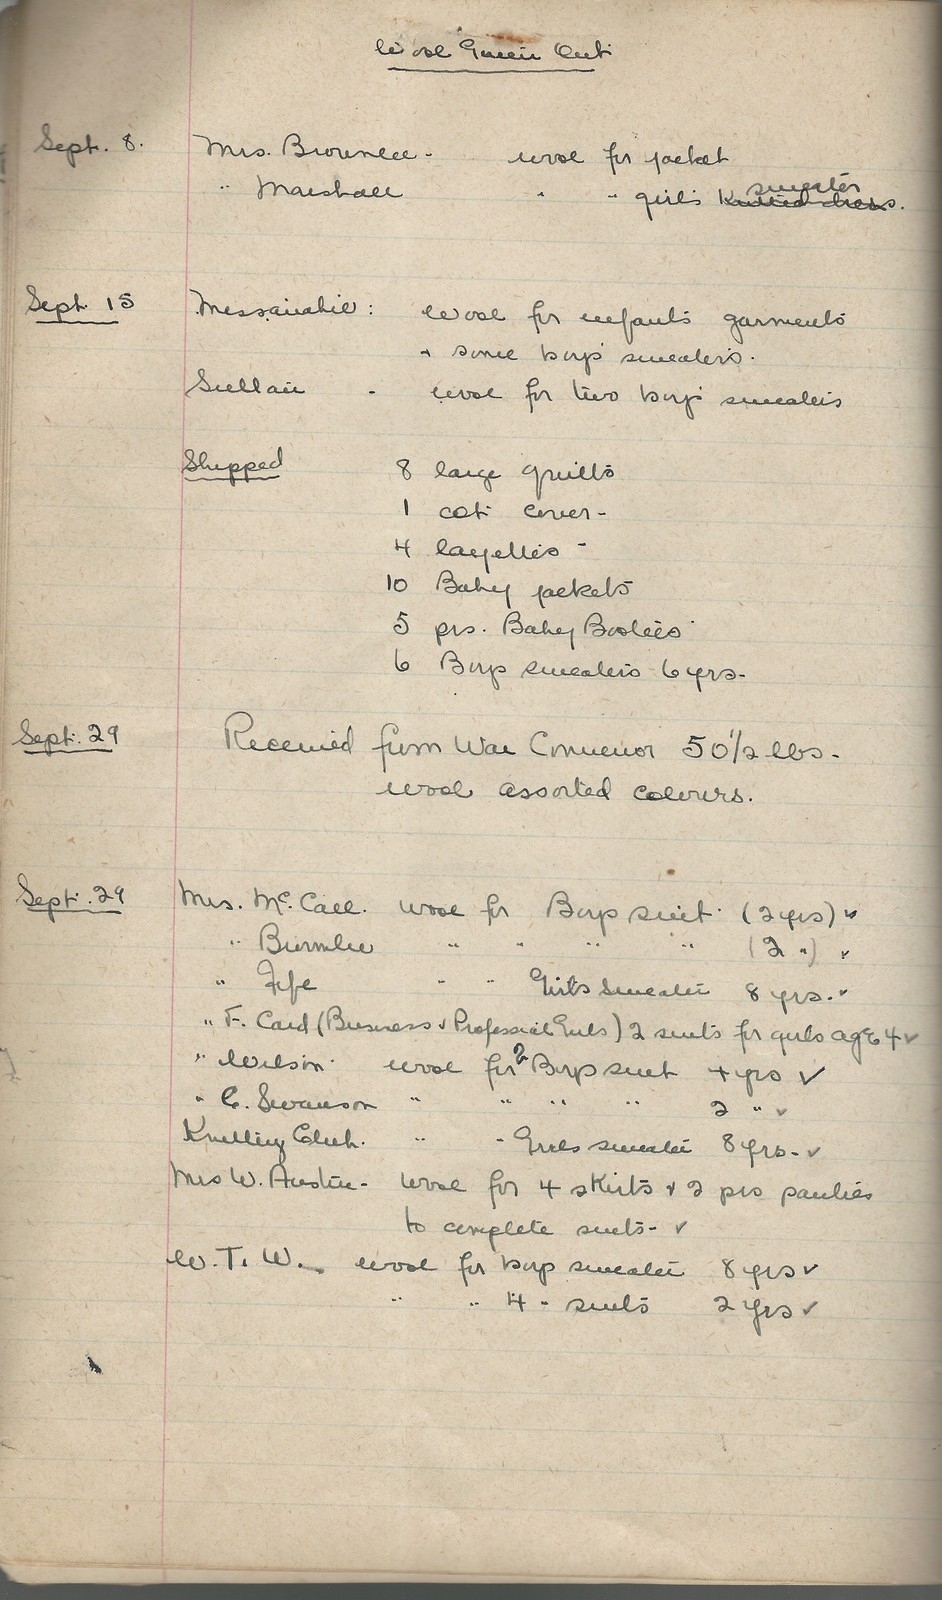 Wool Given Out
Sept. 8. Mrs. Brownlee - wool for jacket
" Marshall " " girl's sweater Knitted dress.
Sept 15 Messinabie: Wool for infants garments
+ some boys' sweaters.
Sultan - wool for two boys' sweaters
Shipped 8 large quilts
1 cot cover -
4 layettes -
10 Baby jackets
5 prs. Baby Bootees
6 Boys sweaters 6 yrs -
Sept. 29 Received from War Convenor 50 1/2 lbs -
wool assorted colours.
Sept. 29 Mrs. McCall. wool for Boys suit (2 yrs) ✓
" Brownlee " " " " (2 ") ✓
" Fife " " Girls Sweater 8 yrs. ✓
" F. Card (Business & Professional Girls) 2 suits for girls age 4 ✓
" Wilson wool for 2 Boys suit 4 yrs ✓
" C. Swanson " " " " 2 " ✓
Knitting Club. " " Girls sweater 8 yrs - ✓
Mrs W. Austin - Wool for 4 skirts & 2 prs panties
to complete suits - ✓
W. T. W. wool for boys sweater 8 yrs ✓
" " 4 - suits 2 yrs ✓